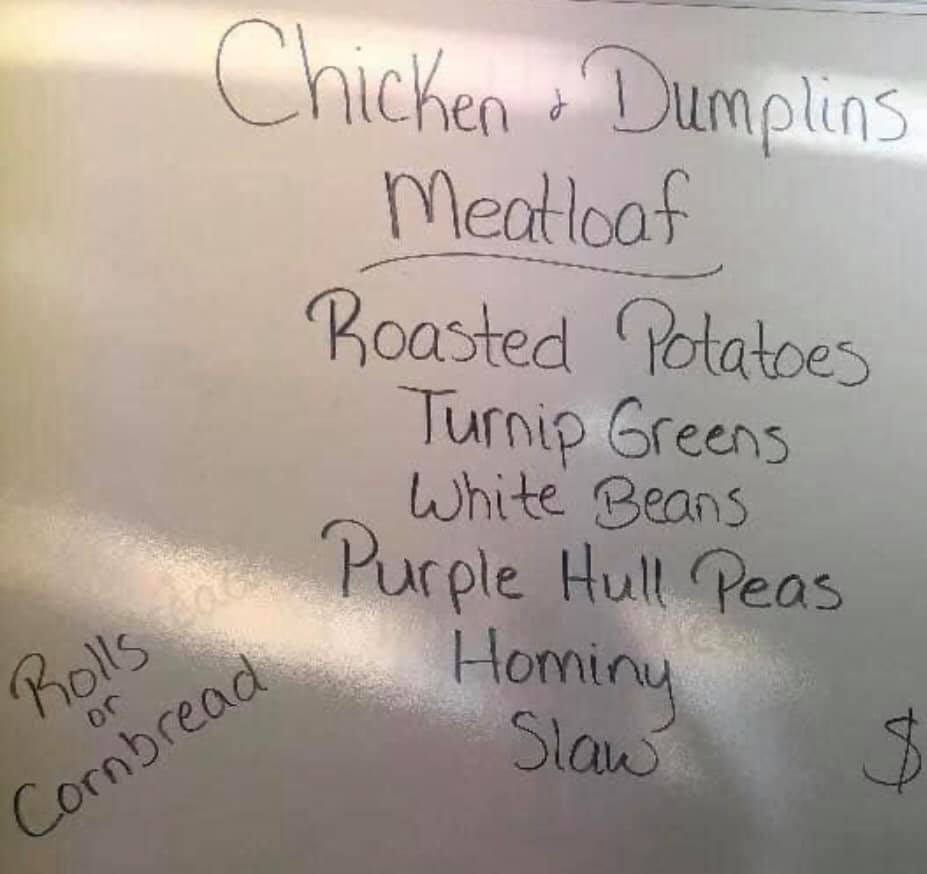 Chicken & Dumplins
Meatloaf
Roasted Potatoes
Turnip Greens
White Beans
Purple Hull Peas
Hominy
Slaw
Rolls
or
Cornbread
$